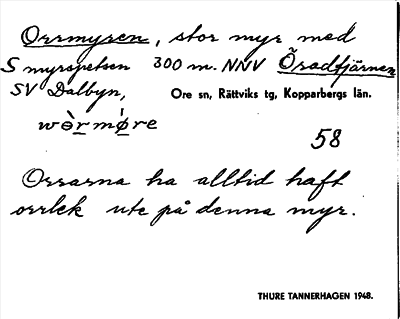 Orrmyren, stor myr med
S myrspetsen 300 m. NNV Öradtjärnen
SV Dalbyn, Ore sn, Rättviks tg, Kopparbergs län.
wòr mø̀re
58
Orrarna ha alltid haft
orrlek ute på denna myr.
THURE TANNERHAGEN 1948.